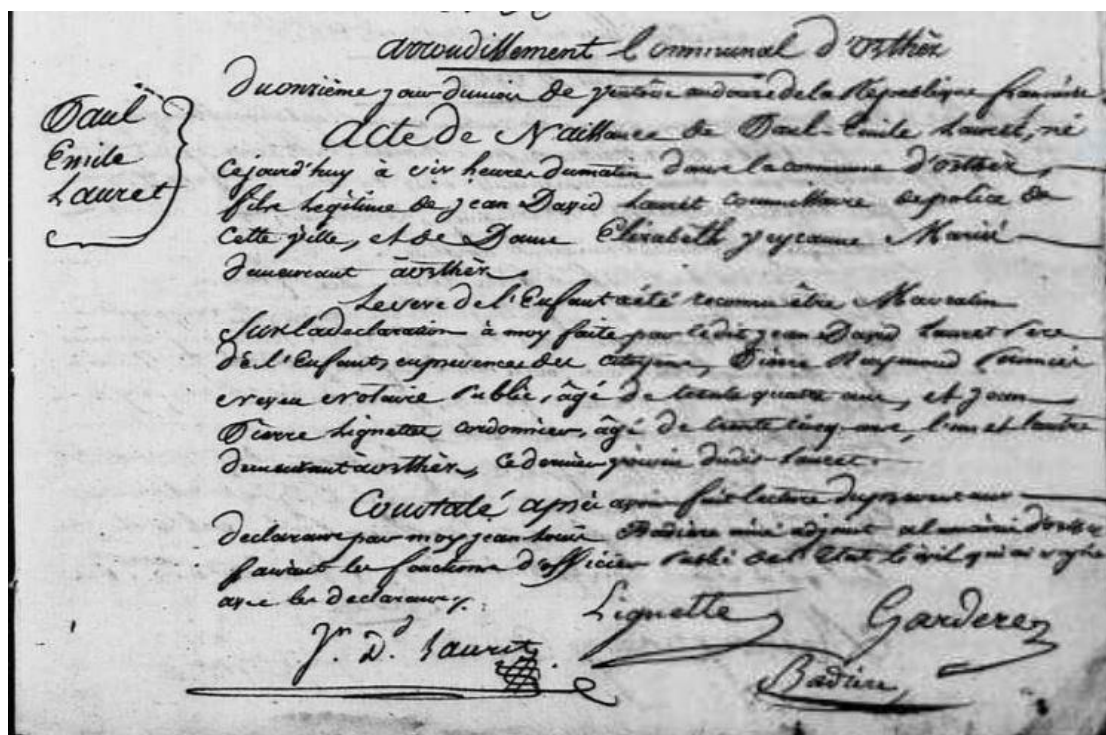 arrondissement Communal d'orthèz
Paul
Emile
Lauret
Du onzième jour du mois de ventose an douze de la République française
Acte de Naissance de Paul-Emile Lauret, né
Cejourd'huy à six heures du matin dans la commune d'orthèz,
fils Légitime de jean David Lauret Commissaire de police de
Cette ville, et de Dame Elizabeth Marié
demeurant à orthèz.
Le sexe de l'Enfant a été reconnu être Masculin
Sur la declaration à moy faite par ledit jean David Lauret Père
de L'Enfant, en presence des citoyens, Pierre Raymond
notaire Public, âgé de trente quatre ans, et jean
Pierre Lignette cordonnier, âgé de trente cinq ans, l'un et l'autre
demeurant à orthèz, ce dernier voisin dudit Lauret.
Constaté après avoir fait lecture du present aux
declarans par moy jean Louis Badière ainé adjoint a la mairie d'orthez
faisant les fonctions d'officier Public de l'Etat Civil qui ai signé
avec les declarans.
Lignette Garderez
Jn. Dd. Lauret
Badière,